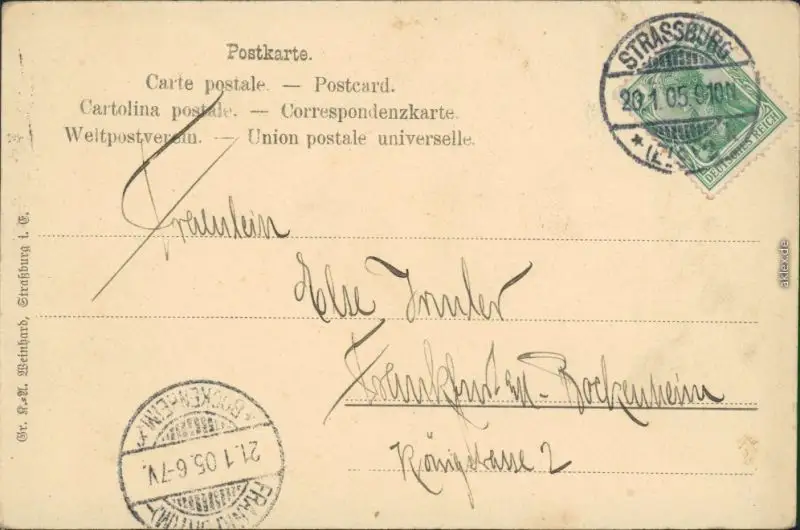 Postkarte.
Carte postale. — Postcard.
Cartolina postale. — Correspondenzkarte.
Weltpostverein. — Union postale universelle.
STRASSBURG
20.1.05.9-10N
* (ELS.)
DEUTSCHES REICH
Fräulein
Else
Frankfurt a/M - Bockenheim
Königstrasse 2
Gr. K.-A. Weinhard, Straßburg i. E.
*BOCKENHEIM.*
21.1.05.6-7V.
FRANKFURT (M.)
aklex.de